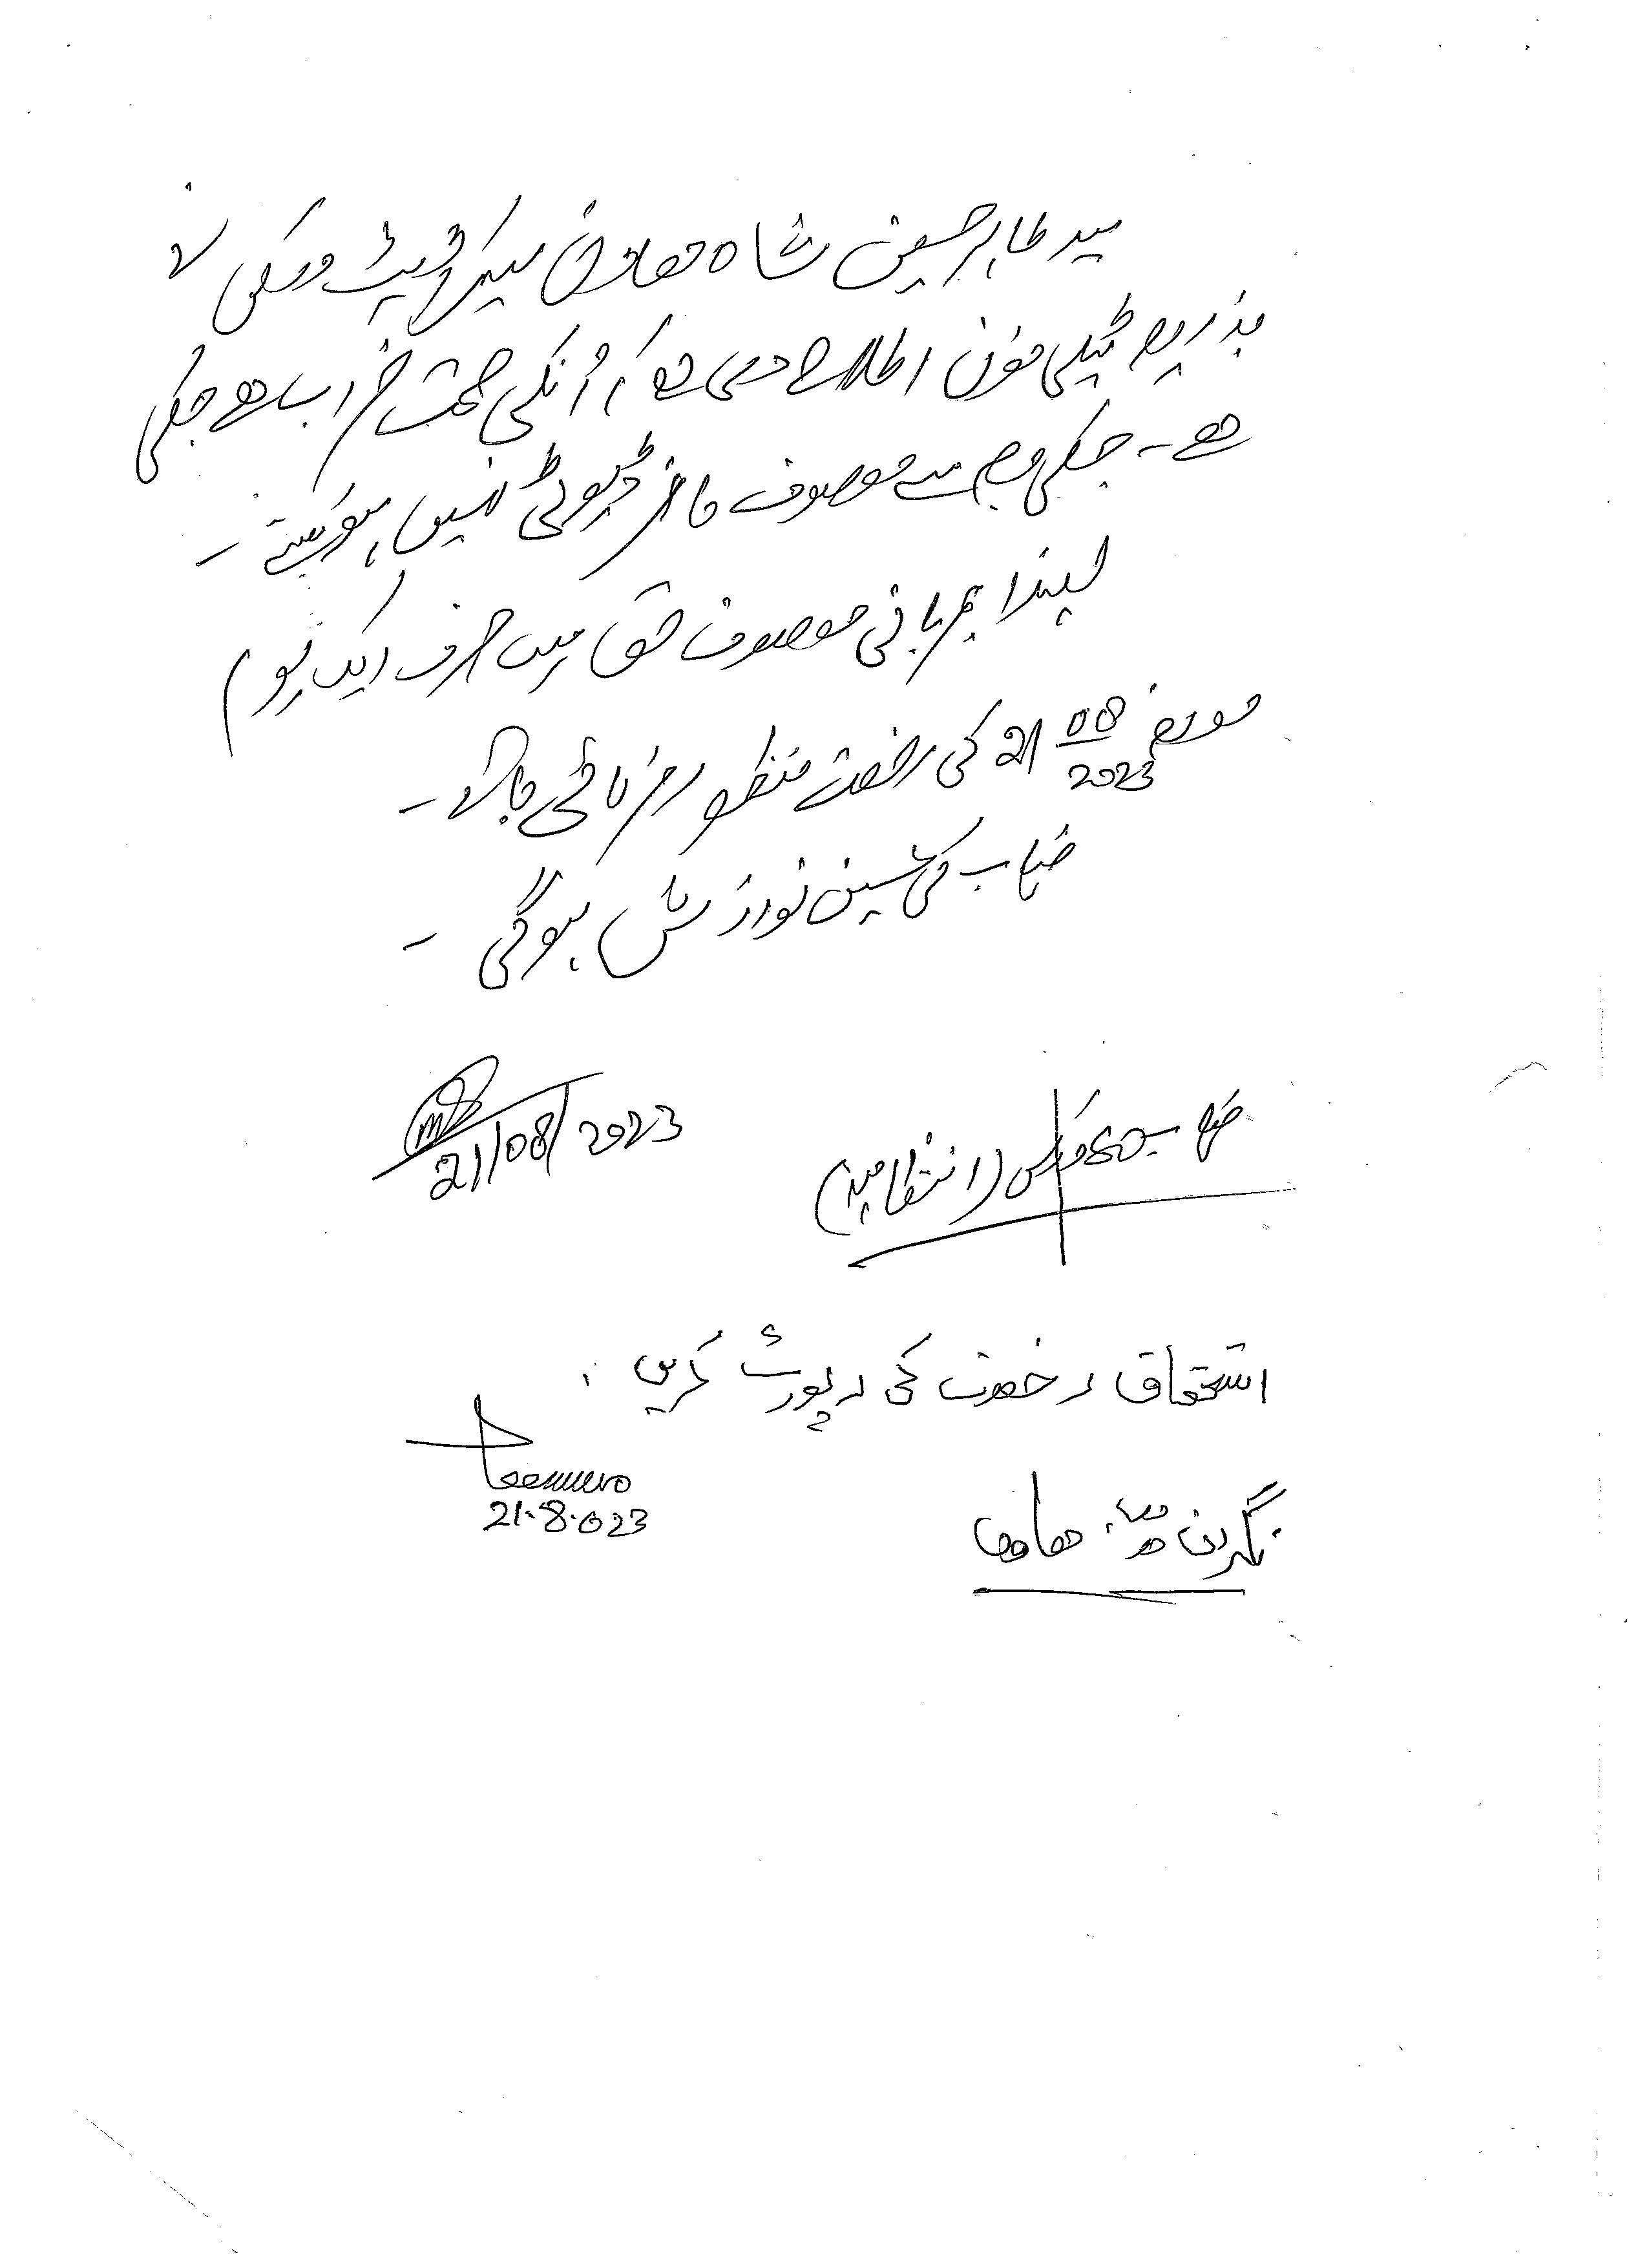 سید طاہر حسین شاہ معاون سیکرٹریٹ ورکس نے
بذریعہ ٹیلی فون اطلاع دی ہے کہ انکی صحت خراب ہے جسکی
ہے۔ جسکی وجہ سے موصوف حاضر ڈیوٹی نہیں ہو سکتے۔
لہذا مہربانی موصوف حق میں صرف ایک یوم
مورخہ 21/08/2023 کی رخصت منظور فرمائی جائے۔
جناب کی عین نوازش ہوگی۔
21/08/2023
جناب SO ورکس (انتظامیہ)
استحقاق رخصت کی رپورٹ کریں۔
21.8.023
نگران صاحب